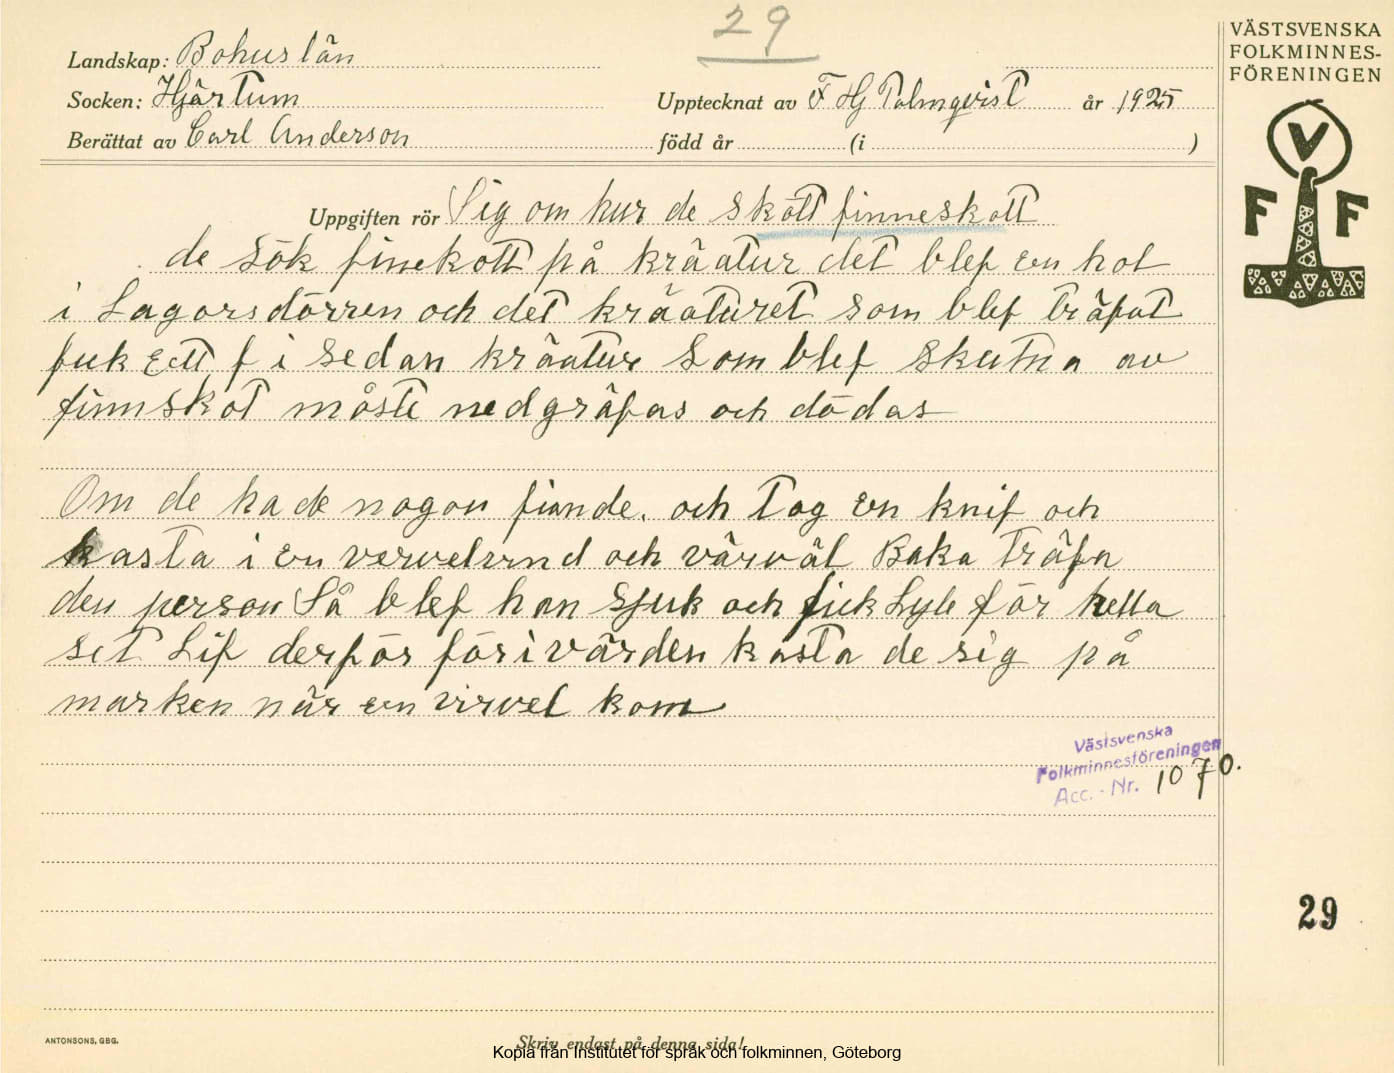 29
VÄSTSVENSKA
FOLKMINNES-
FÖRENINGEN
Landskap: Bohuslän
Socken: Hjärtum
Upptecknat av F Hj Palmqvist år 1925
Berättat av Carl Anderson
född år (i )
V
F F
Uppgiften rör Sig om hur de skött finneskott
de sök finekott på kräatur det blef en hol
i Lagorsdörren och det kräaturet som blef träfat
fick ett f i sedan kräatur som blef skutna av
finnskot måste nedgräfas och dödas
Om de hade nogon fiande. och tog en knif och
kasta i en vervelvind och värväl Baka träfa
den person Så blef han sjuk och fick Lyte för hella
set Lif derför förivärden kasta de sig på
marken när en virvel kom
Västsvenska
Folkminnesföreningen
Acc. - Nr. 1070.
29
ANTONSONS, GBG.
Skriv endast på denna sida!
Kopia från Institutet för språk och folkminnen, Göteborg